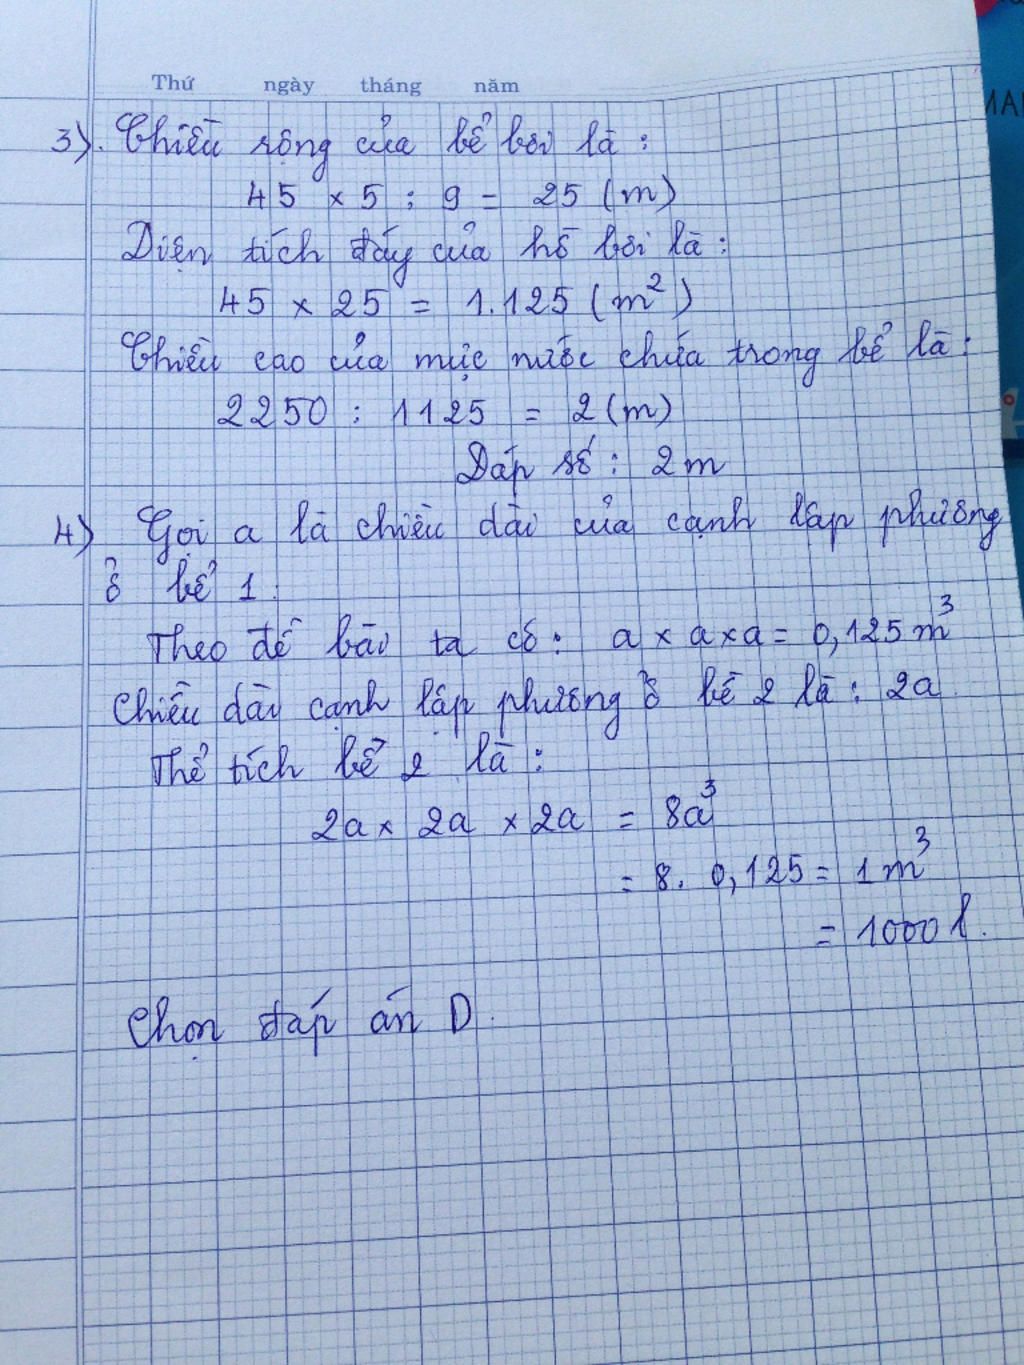 Thứ ngày tháng năm
3). Chiều rộng của bể bơi là:
45 x 5 : 9 = 25 (m)
Diện tích đáy của hồ bơi là:
45 x 25 = 1.125 (m²)
Chiều cao của mực nước chứa trong bể là:
2250 : 1125 = 2 (m)
Đáp số: 2m
4) Gọi a là chiều dài của cạnh lập phương
ở bể 1.
Theo đề bài ta có: a x a x a = 0,125 m³
Chiều dài cạnh lập phương ở bể 2 là: 2a.
Thể tích bể 2 là:
2a x 2a x 2a = 8a³
= 8. 0,125 = 1 m³
= 1000 l.
Chọn đáp án D.